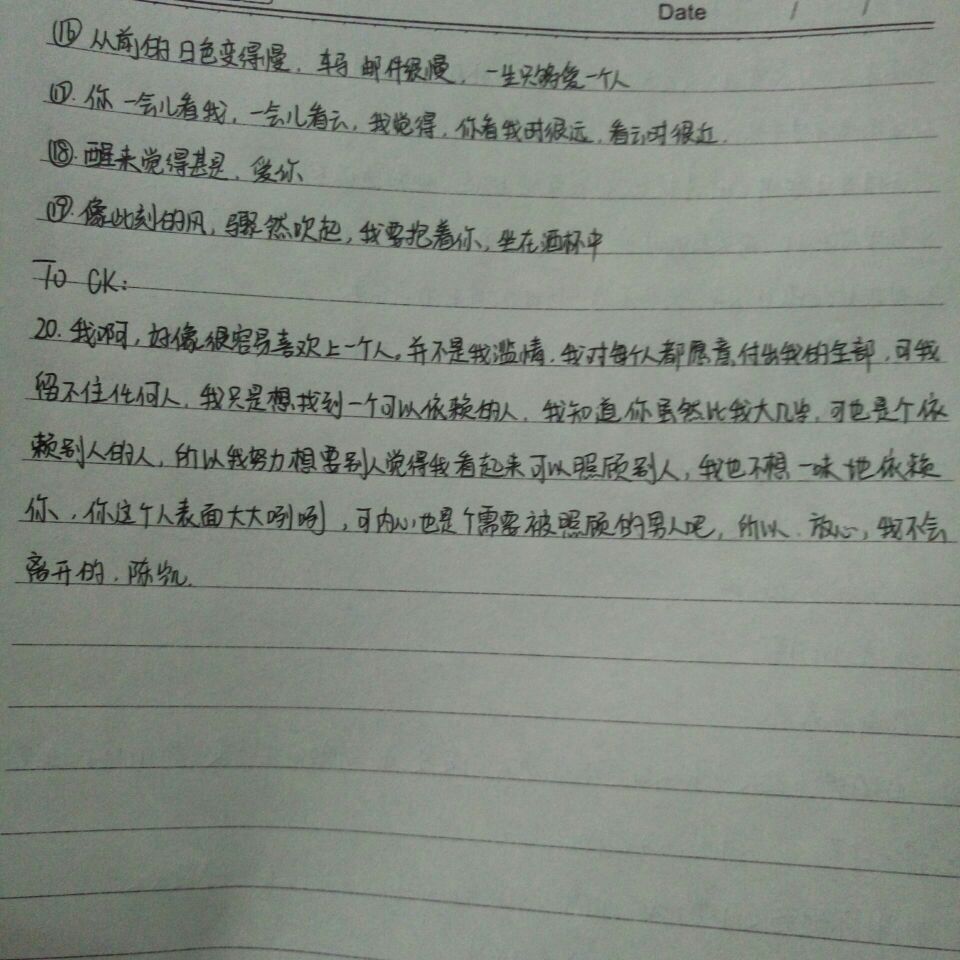 Date / /
⑯ 从前的日色变得慢，车马邮件很慢，一生只够爱一个人
⑰. 你一会儿看我，一会儿看云，我觉得，你看我时很远，看云时很近.
⑱. 醒来觉得甚是，爱你
⑲. 像此刻的风，骤然吹起，我要抱着你，坐在酒杯中
To CK:
20. 我啊，好像很容易喜欢上一个人。并不是我滥情，我对每个人都愿意付出我的全部，可我
留不住任何人，我只是想找到一个可以依赖的人，我知道你虽然比我大几岁，可也是个依
赖别人的人，所以我努力想要别人觉得我看起来可以照顾别人，我也不想一味地依赖
你，你这个人表面大大咧咧，可内心也是个需要被照顾的男人吧，所以，放心，我不会
离开的，陈凯.